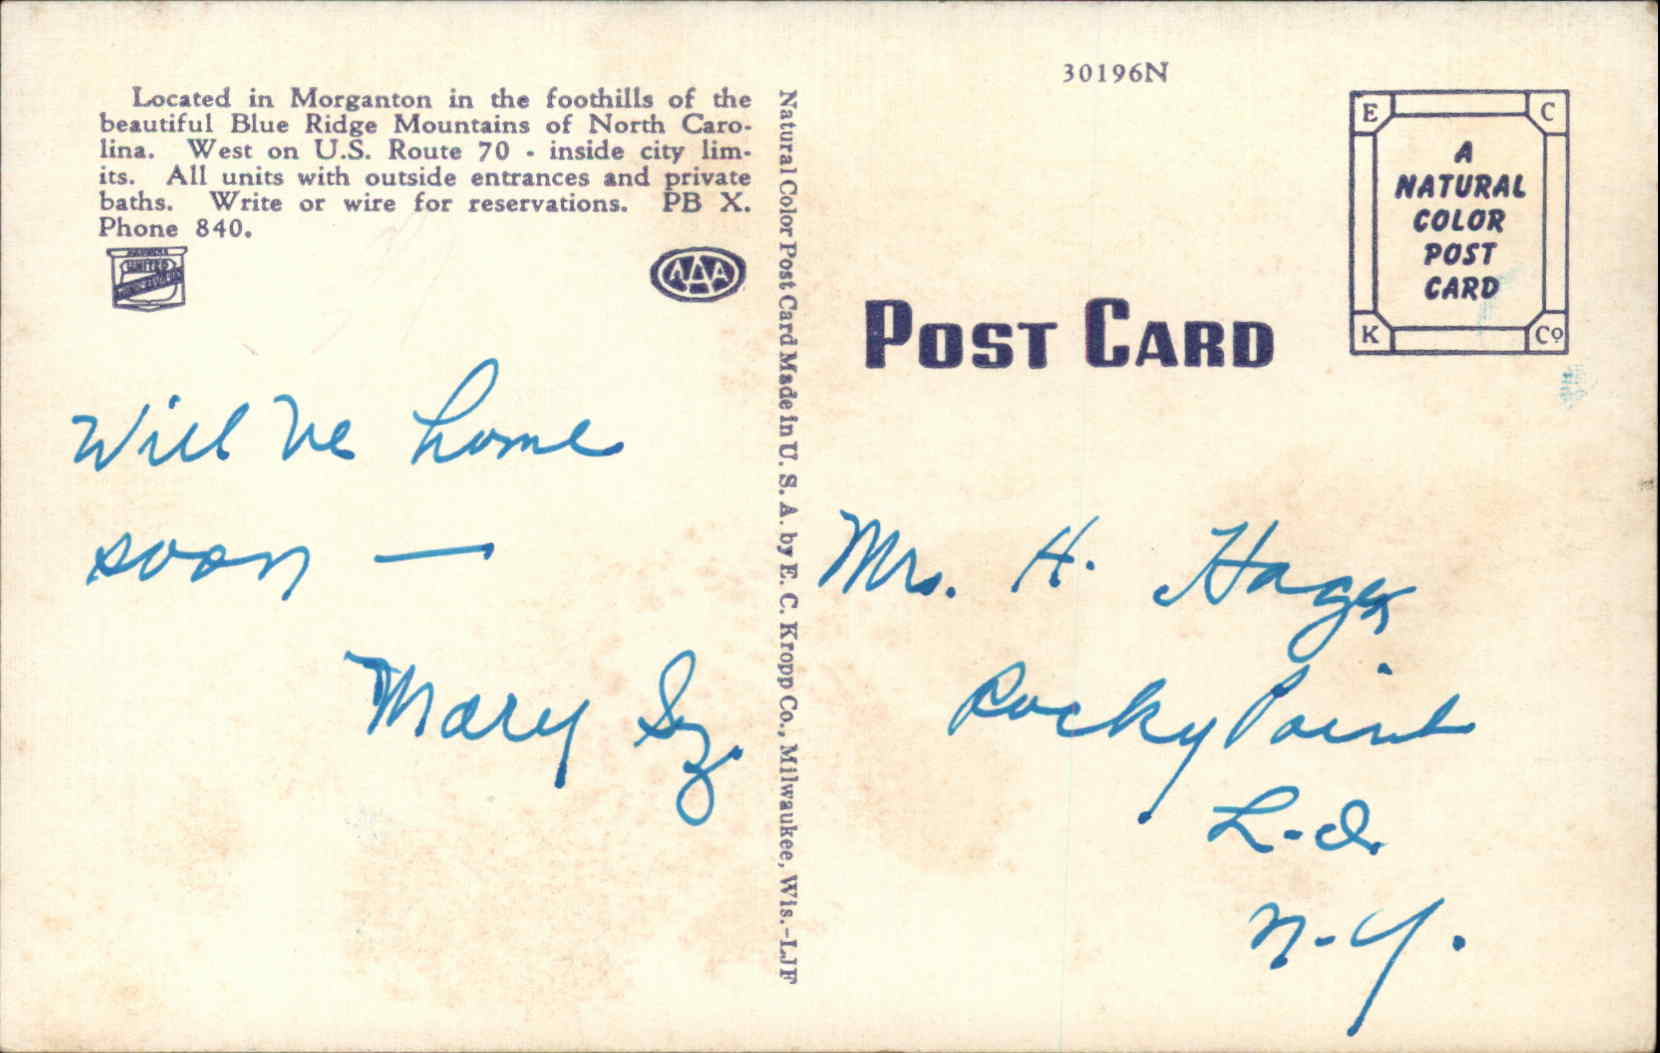 Located in Morganton in the foothills of the
beautiful Blue Ridge Mountains of North Caro-
lina. West on U.S. Route 70 - inside city lim-
its. All units with outside entrances and private
baths. Write or wire for reservations. PB X.
Phone 840.
UNITED
AAA
Will be home
soon —
Mary Sz.
Natural Color Post Card Made in U. S. A. by E. C. Kropp Co., Milwaukee, Wis.-LJF
30196N
E C
A
NATURAL
COLOR
POST
CARD
K Co
POST CARD
Mrs. H. Hager
Rocky Point
L-I.
N-Y.